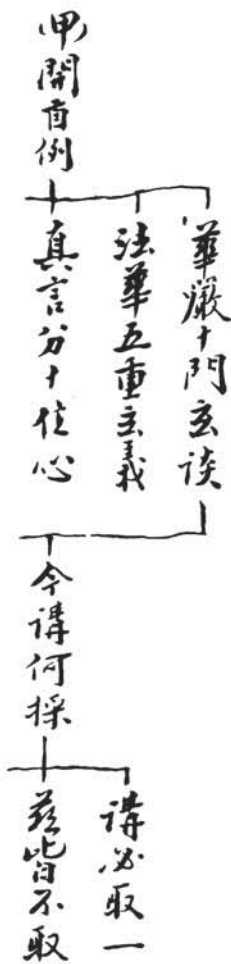 (甲)開首例
華嚴十門玄談
法華五重玄義
真言分十住心
今講何採
講必取一
茲皆不取